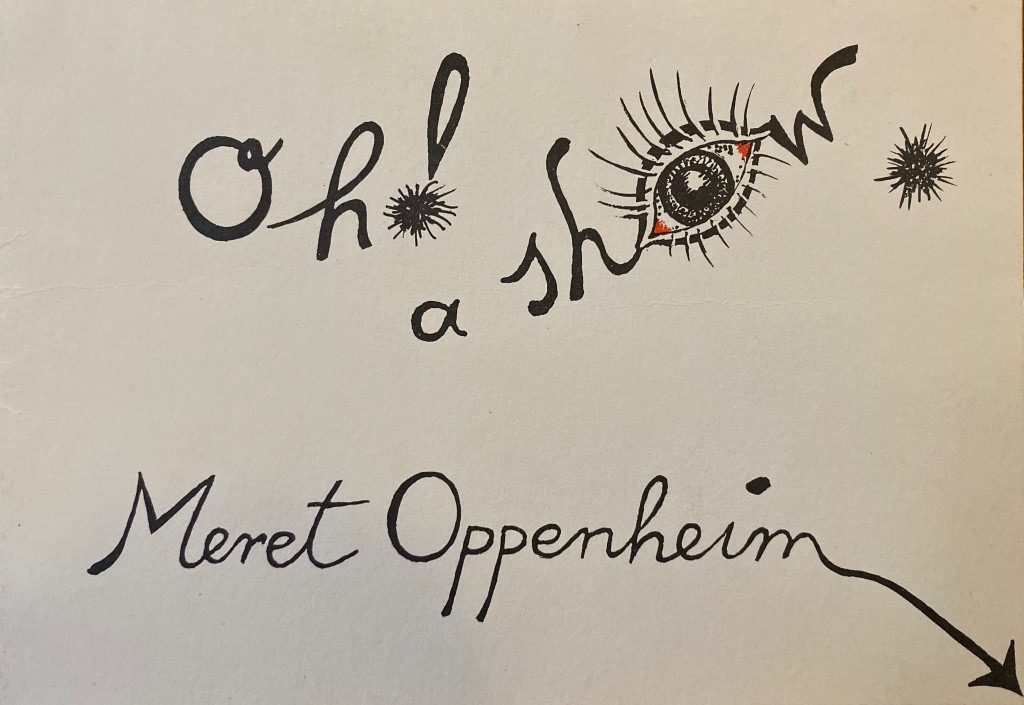 Oh!
a show.
Meret Oppenheim